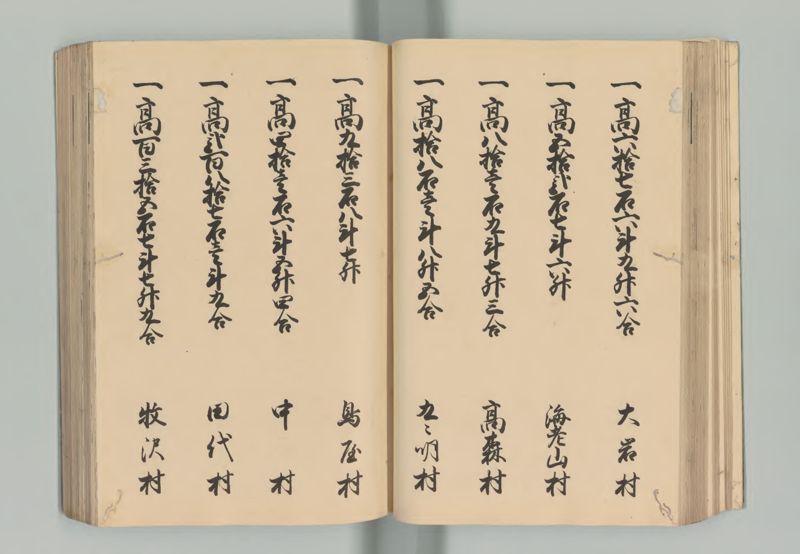 一高六拾七石六斗九升六合 大岩村
一高五拾弐石七斗六升 海老山村
一高八拾壱石九斗七升三合 高森村
一高拾八石壱斗八升五合 九々明村
一高九拾三石八斗七升 鳥屋村
一高四拾壱石六斗五升四合 中村
一高弐百八拾七石壱斗九合 田代村
一高百三拾五石七斗七升九合 牧沢村